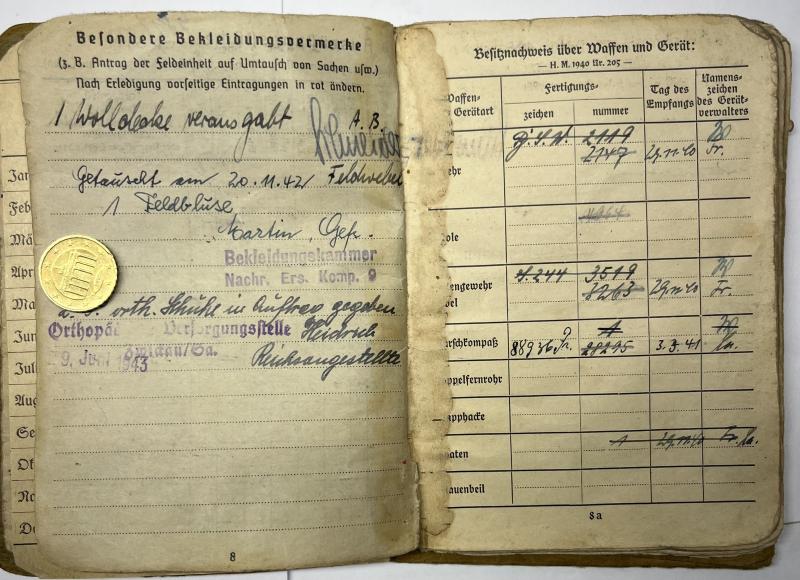 Jan
Feb
Mä
Apr
Ma
Jun
Jul
Aug
Se
Ok
No
De
Besondere Bekleidungsvermerke
(z. B. Antrag der Feldeinheit auf Umtausch von Sachen usw.)
Nach Erledigung vorseitige Eintragungen in rot ändern.
1 Wolldecke verausgabt A. B.
Getauscht am 20.11.42 Feldwebel
1 Feldbluse
Martin, Gefr.
Bekleidungskammer
Nachr. Ers. Komp. 9
orth. Schuhe in Auftrag gegeben
Orthopä Versorgungsstelle
9. Juni 1943 Zwickau/Sa. Reichsangestellte
8
Besitznachweis über Waffen und Gerät:
— H. M. 1940 Nr. 205 —
Waffen-
Gerätart
Fertigungs-
zeichen
nummer
Tag des
Empfangs
Namens-
zeichen
des Gerät-
verwalters
2119
ehr 2147 29.11.40 Fr.
ole
engewehr S.244 3519
bel 3263 29.11.40 Fr.
arschkompaß 28295 3.3.41
oppelfernrohr
apphacke
aten 1 29.11.40 Fr.
auenbeil
8a